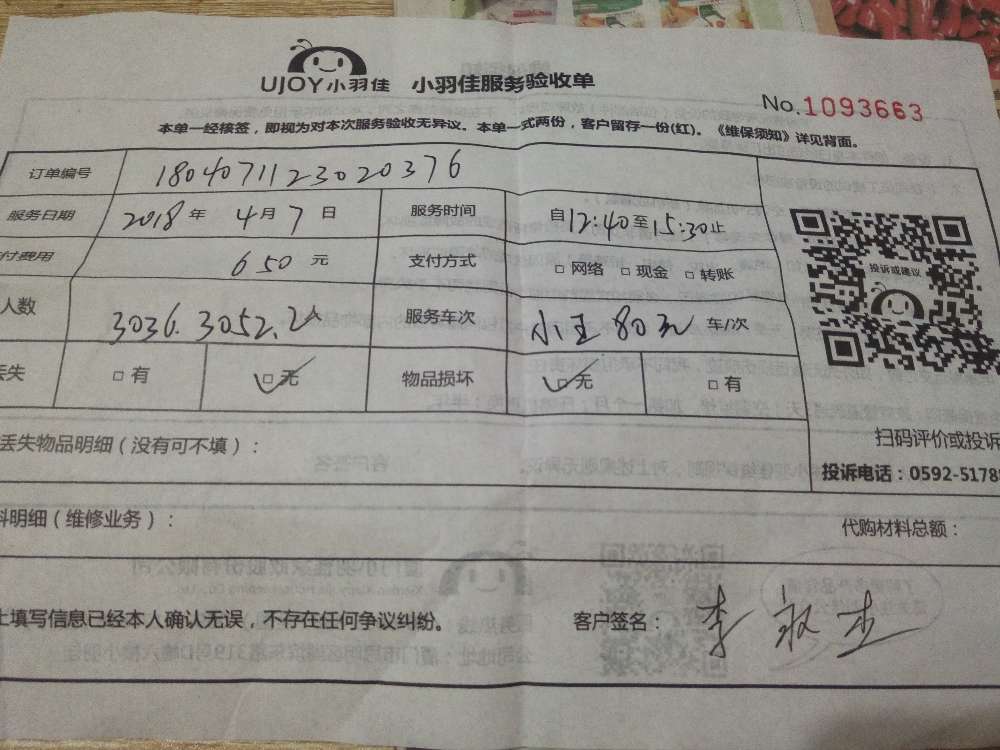 UJOY小羽佳 小羽佳服务验收单
No.1093663
本单一经接签，即视为对本次服务验收无异议。本单一式两份，客户留存一份(红)。《维保须知》详见背面。
订单编号 180407112302037​6
服务日期 2018年4月7日 服务时间 自12:40至15:30止
付费用 650元 支付方式 □网络 □现金 □转账
人数 3036.3052.2人 服务车次 小王80元 车/次
丢失 □有 □无 物品损坏 □无 □有
投诉或建议
丢失物品明细（没有可不填）：
扫码评价或投诉
投诉电话：0592-5178
料明细（维修业务）： 代购材料总额：
上填写信息已经本人确认无误，不存在任何争议纠纷。 客户签名：李